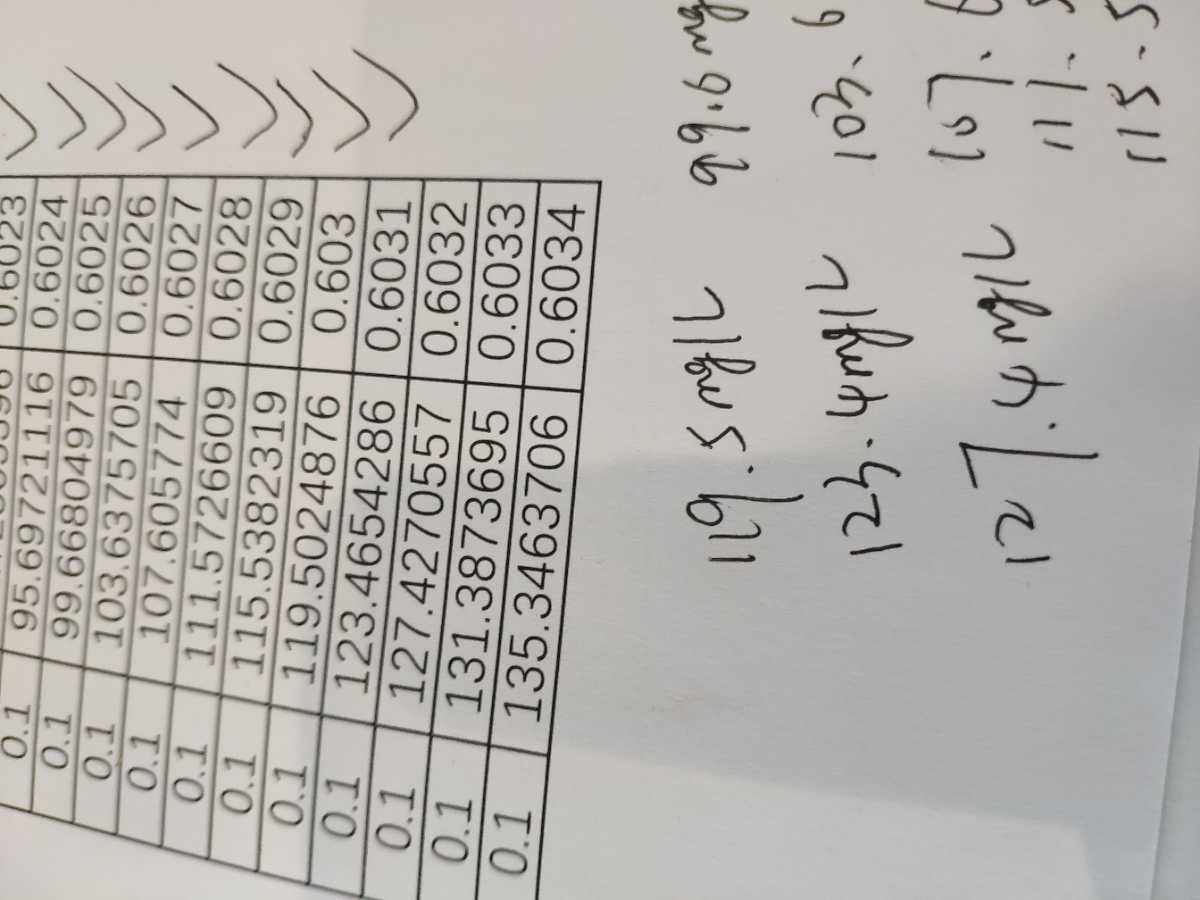 0.6023
0.1 95.69721116 0.6024
0.1 99.66804979 0.6025
0.1 103.6375705 0.6026
0.1 107.605774 0.6027
0.1 111.5726609 0.6028
0.1 115.5382319 0.6029
0.1 119.5024876 0.603
0.1 123.4654286 0.6031
0.1 127.4270557 0.6032
0.1 131.3873695 0.6033
0.1 135.3463706 0.6034
119.5 mg/L 99.6 mg
123.4 mg/L 103.6
127.4 mg/L 107.6
111.5
115.5